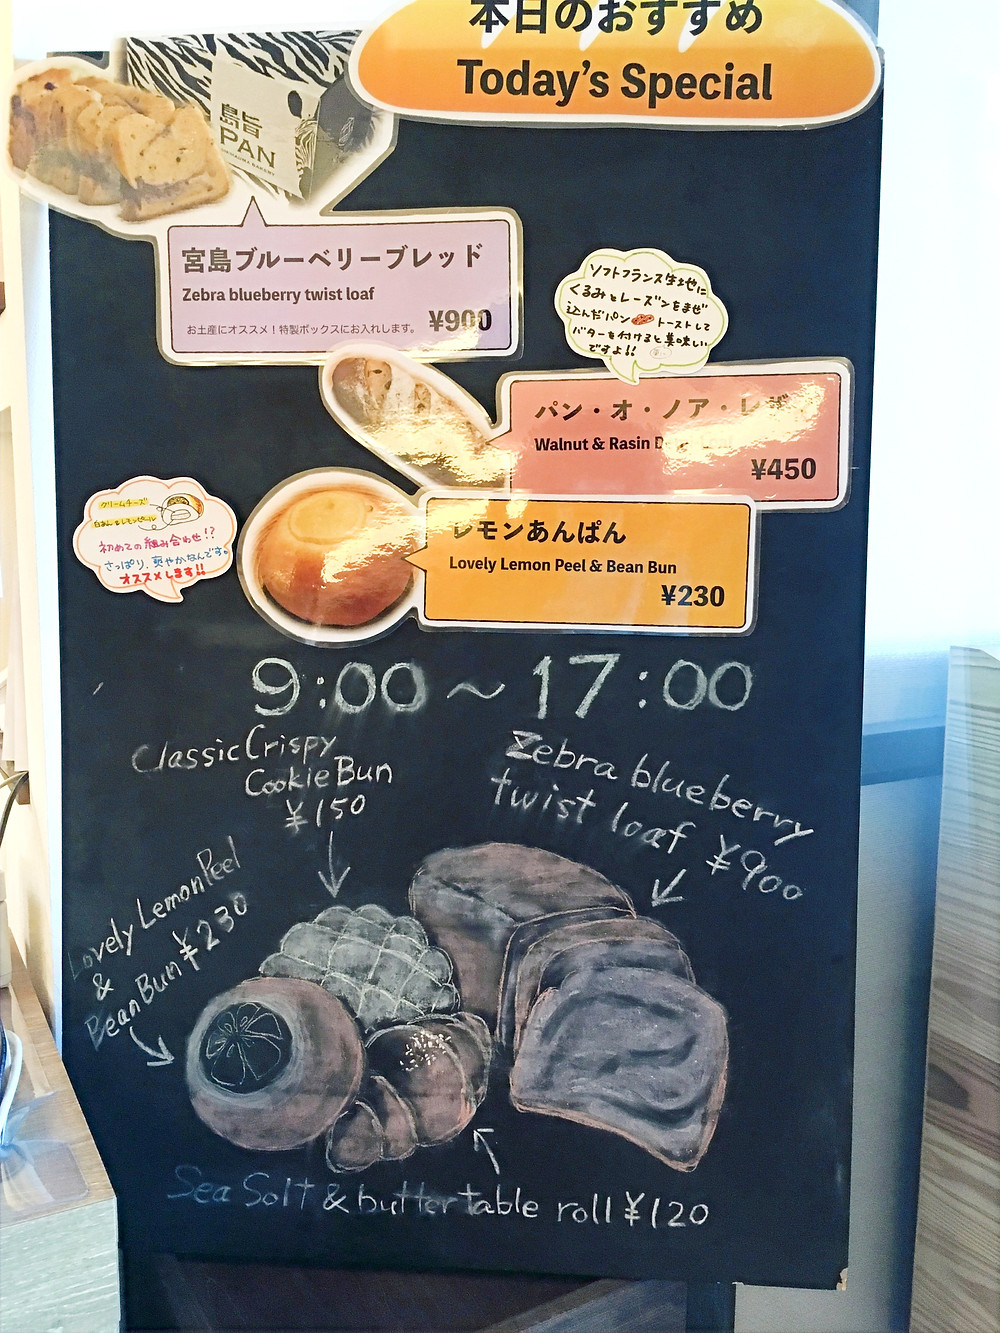 本日のおすすめ
Today's Special
島旨
PAN
宮島ブルーベリーブレッド
Zebra blueberry twist loaf
お土産にオススメ！特製ボックスにお入れします。 ¥900
ソフトフランス生地に
くるみとレーズンをまぜ
込んだパン トーストして
バターを付けると美味しい
ですよ!!
パン・オ・ノア・レザン
Walnut & Rasin
¥450
クリームチーズ
白あん&レモンピール
初めての組み合わせ!?
さっぱり、爽やかなんです。
オススメします!!
レモンあんぱん
Lovely Lemon Peel & Bean Bun
¥230
9:00～17:00
Classic Crispy
Cookie Bun
¥150
Zebra blueberry
twist loaf ¥900
Lovely Lemon Peel
&
Bean Bun ¥230
Sea Salt & butter table roll ¥120